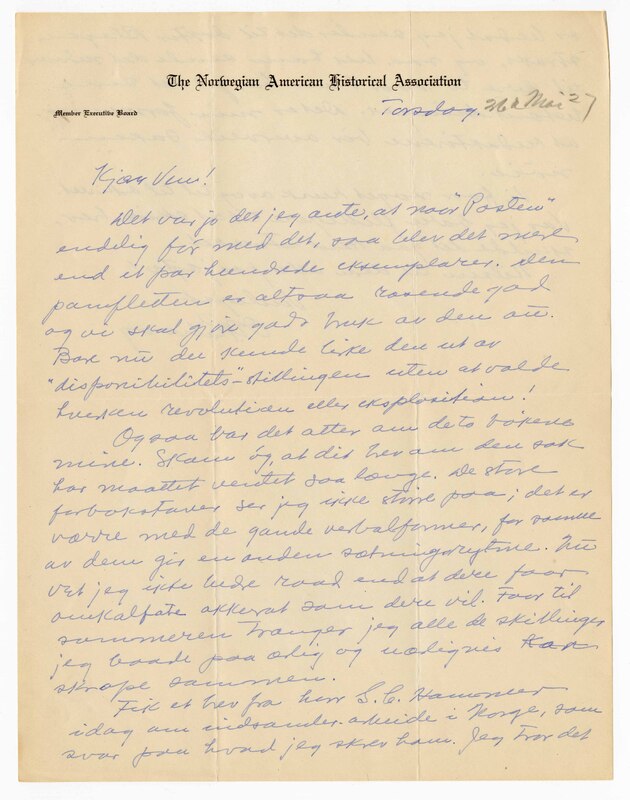 The Norwegian American Historical Association
Member Executive Board
Torsdag. 26 Mai 27
Kjære Ven!
Det var jo det jeg ante, at naar "Posten"
endelig før med det, saa blev det mere
end et par hundrede eksemplarer. Den
pamfletten er altsaa rasende god
og vi skal gjøre god bruk av den au.
Bare nu du kunde lirke den ut av
"disponibilitets"-stillingen uten at volde
hverken revolution eller eksplosition!
Ogsaa var det atter om de to bøkene
mine. Skam øg, at dit brev om den sak
har maattet ventet saa længe. De store
forbokstaver ser jeg ikke stort paa; det er
værre med de gamle verbalformer, for somme
av dem gir en anden sætningsrytme. Nu
vet jeg ikke bedre raad end at dere faar
omkalfatre akkurat som dere vil. For til
sommeren trenger jeg alle de skillinger
jeg baade paa ærlig og uærligvis kan
skrape sammen.
Fik et brev fra herr S. C. Hammer
idag om indsander-arbeide i Norge, som
svar paa hvad jeg skrev ham. Jeg tror det